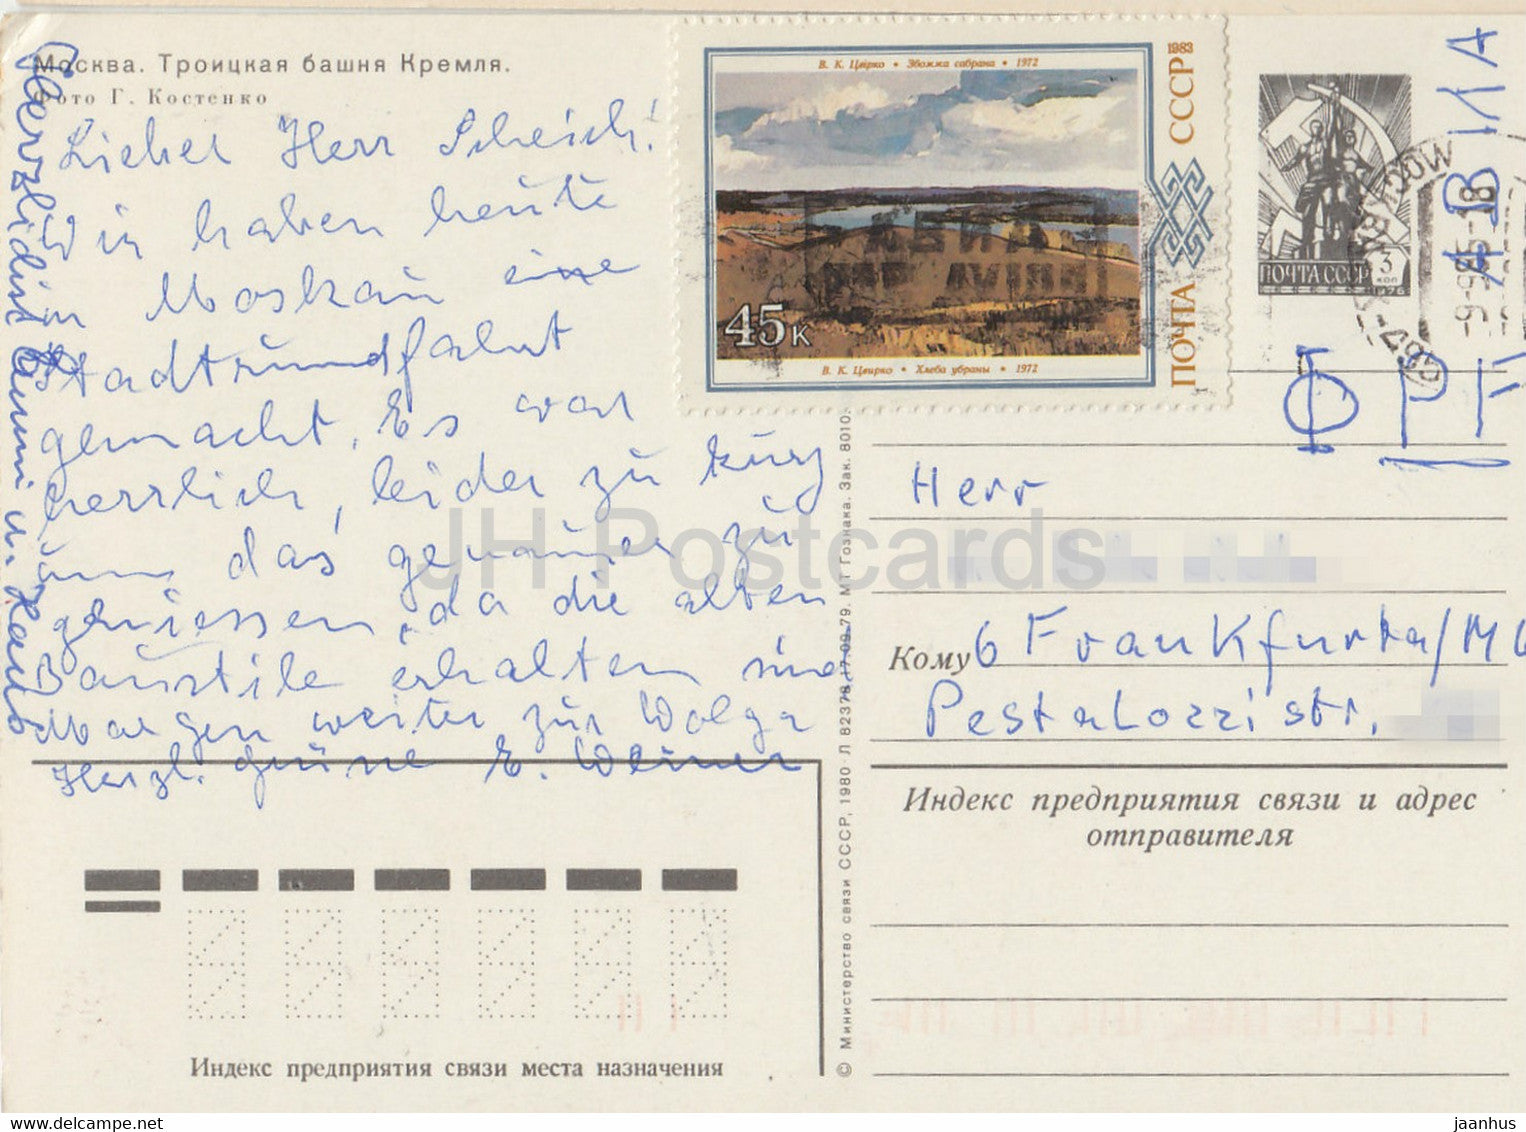 Москва. Троицкая башня Кремля.
Фото Г. Костенко
Lieber Herr Scheich!
Wir haben heute
in Moskau eine
Stadtrundfahrt
gemacht. Es war
herrlich, leider zu kurz
um das genauer zu
geniessen, da die alten
Baustile erhalten sind
Morgen weiter zur Wolga
Herzl. Grüße E. Weimer
Herzlichst
В. К. Цвірко • Збожжа сабрана • 1972
45к
В. К. Цвирко • Хлеба убраны • 1972
1983
ПОЧТА СССР
АВИА
PAR AVION
ПОЧТА СССР 3 коп
1976
MOSCOW
9-985-18
АВИА
ФРГ
Herr
Кому 6 Frankfurta/M
Pestalozzistr.
Индекс предприятия связи и адрес
отправителя
© Министерство связи СССР, 1980 Л 82378, 17.09.79. МТ Гознака. Зак. 8010.
Индекс предприятия связи места назначения
JH Postcards
www.delcampe.net
jaanhus